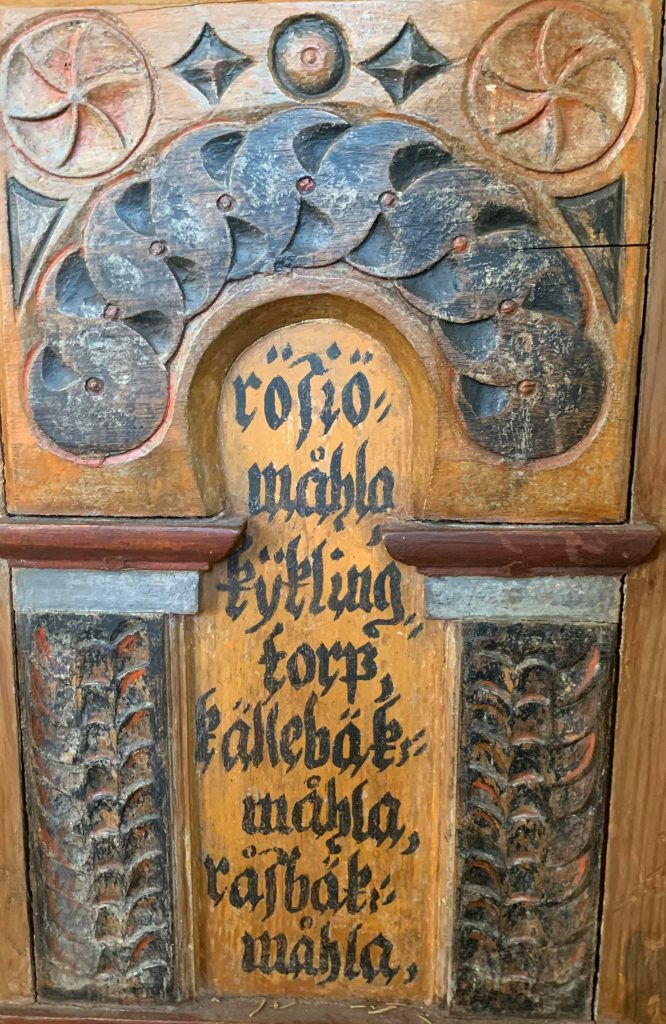 röſiö⸗
måhla
kÿkling⸗
torp,
källebäk⸗
måhla,
råſbäk⸗
måhla,